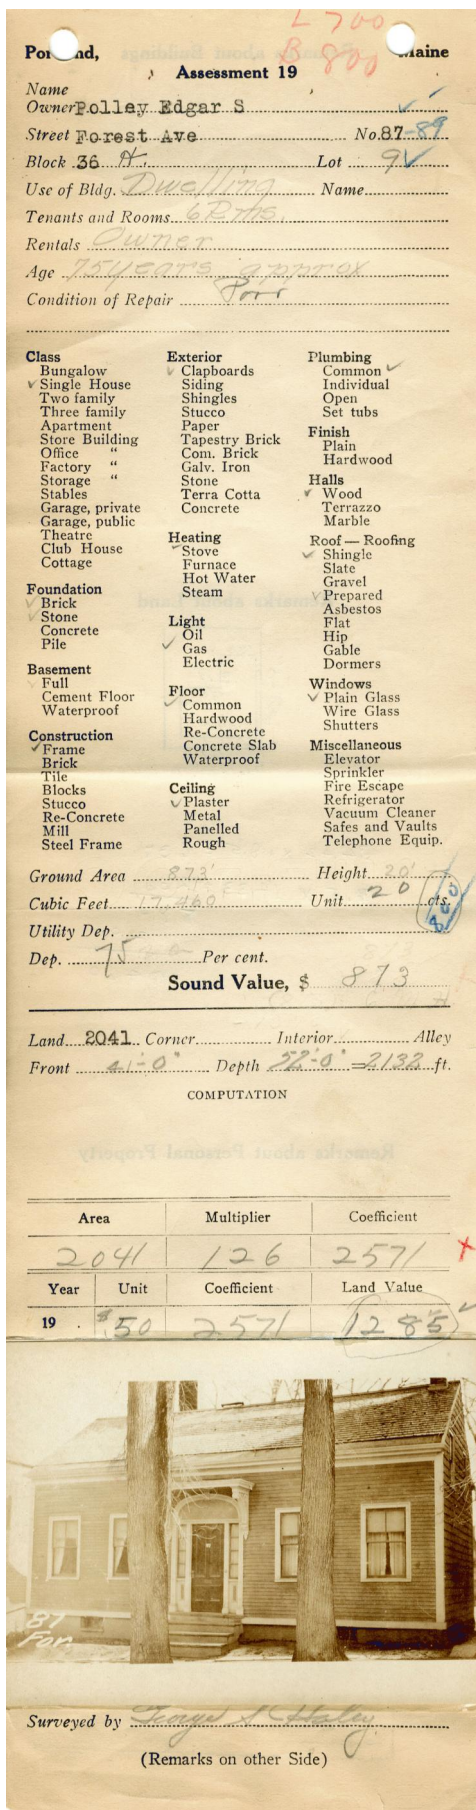 L 700
Portland, Maine
B 800
Assessment 19
Name
Owner Polley Edgar S
Street Forest Ave No. 87-89
Block 36 A. Lot 9
Use of Bldg. Dwelling Name
Tenants and Rooms 6 Rms.
Rentals Owner
Age 75 years approx
Condition of Repair Poor
Class
Bungalow
✓ Single House
Two family
Three family
Apartment
Store Building
Office "
Factory "
Storage "
Stables
Garage, private
Garage, public
Theatre
Club House
Cottage
Foundation
✓ Brick
✓ Stone
Concrete
Pile
Basement
✓ Full
Cement Floor
Waterproof
Construction
✓ Frame
Brick
Tile
Blocks
Stucco
Re-Concrete
Mill
Steel Frame
Exterior
✓ Clapboards
Siding
Shingles
Stucco
Paper
Tapestry Brick
Com. Brick
Galv. Iron
Stone
Terra Cotta
Concrete
Heating
✓ Stove
Furnace
Hot Water
Steam
Light
Oil
✓ Gas
Electric
Floor
✓ Common
Hardwood
Re-Concrete
Concrete Slab
Waterproof
Ceiling
✓ Plaster
Metal
Panelled
Rough
Plumbing
Common ✓
Individual
Open
Set tubs
Finish
Plain
Hardwood
Halls
✓ Wood
Terrazzo
Marble
Roof — Roofing
✓ Shingle
Slate
Gravel
✓ Prepared
Asbestos
Flat
Hip
Gable
Dormers
Windows
✓ Plain Glass
Wire Glass
Shutters
Miscellaneous
Elevator
Sprinkler
Fire Escape
Refrigerator
Vacuum Cleaner
Safes and Vaults
Telephone Equip.
Ground Area 873' Height 20'
Cubic Feet 17,460 Unit 20 cts.
800
Utility Dep.
Dep. 75 Per cent.
Sound Value, $ 873
Land 2041 Corner Interior Alley
Front 41'-0" Depth 52'-0" = 2132 ft.
COMPUTATION
Area Multiplier Coefficient
2041 126 2571
Year Unit Coefficient Land Value
19 $.50 2571 1285
87
For.
Surveyed by George S Haley
(Remarks on other Side)